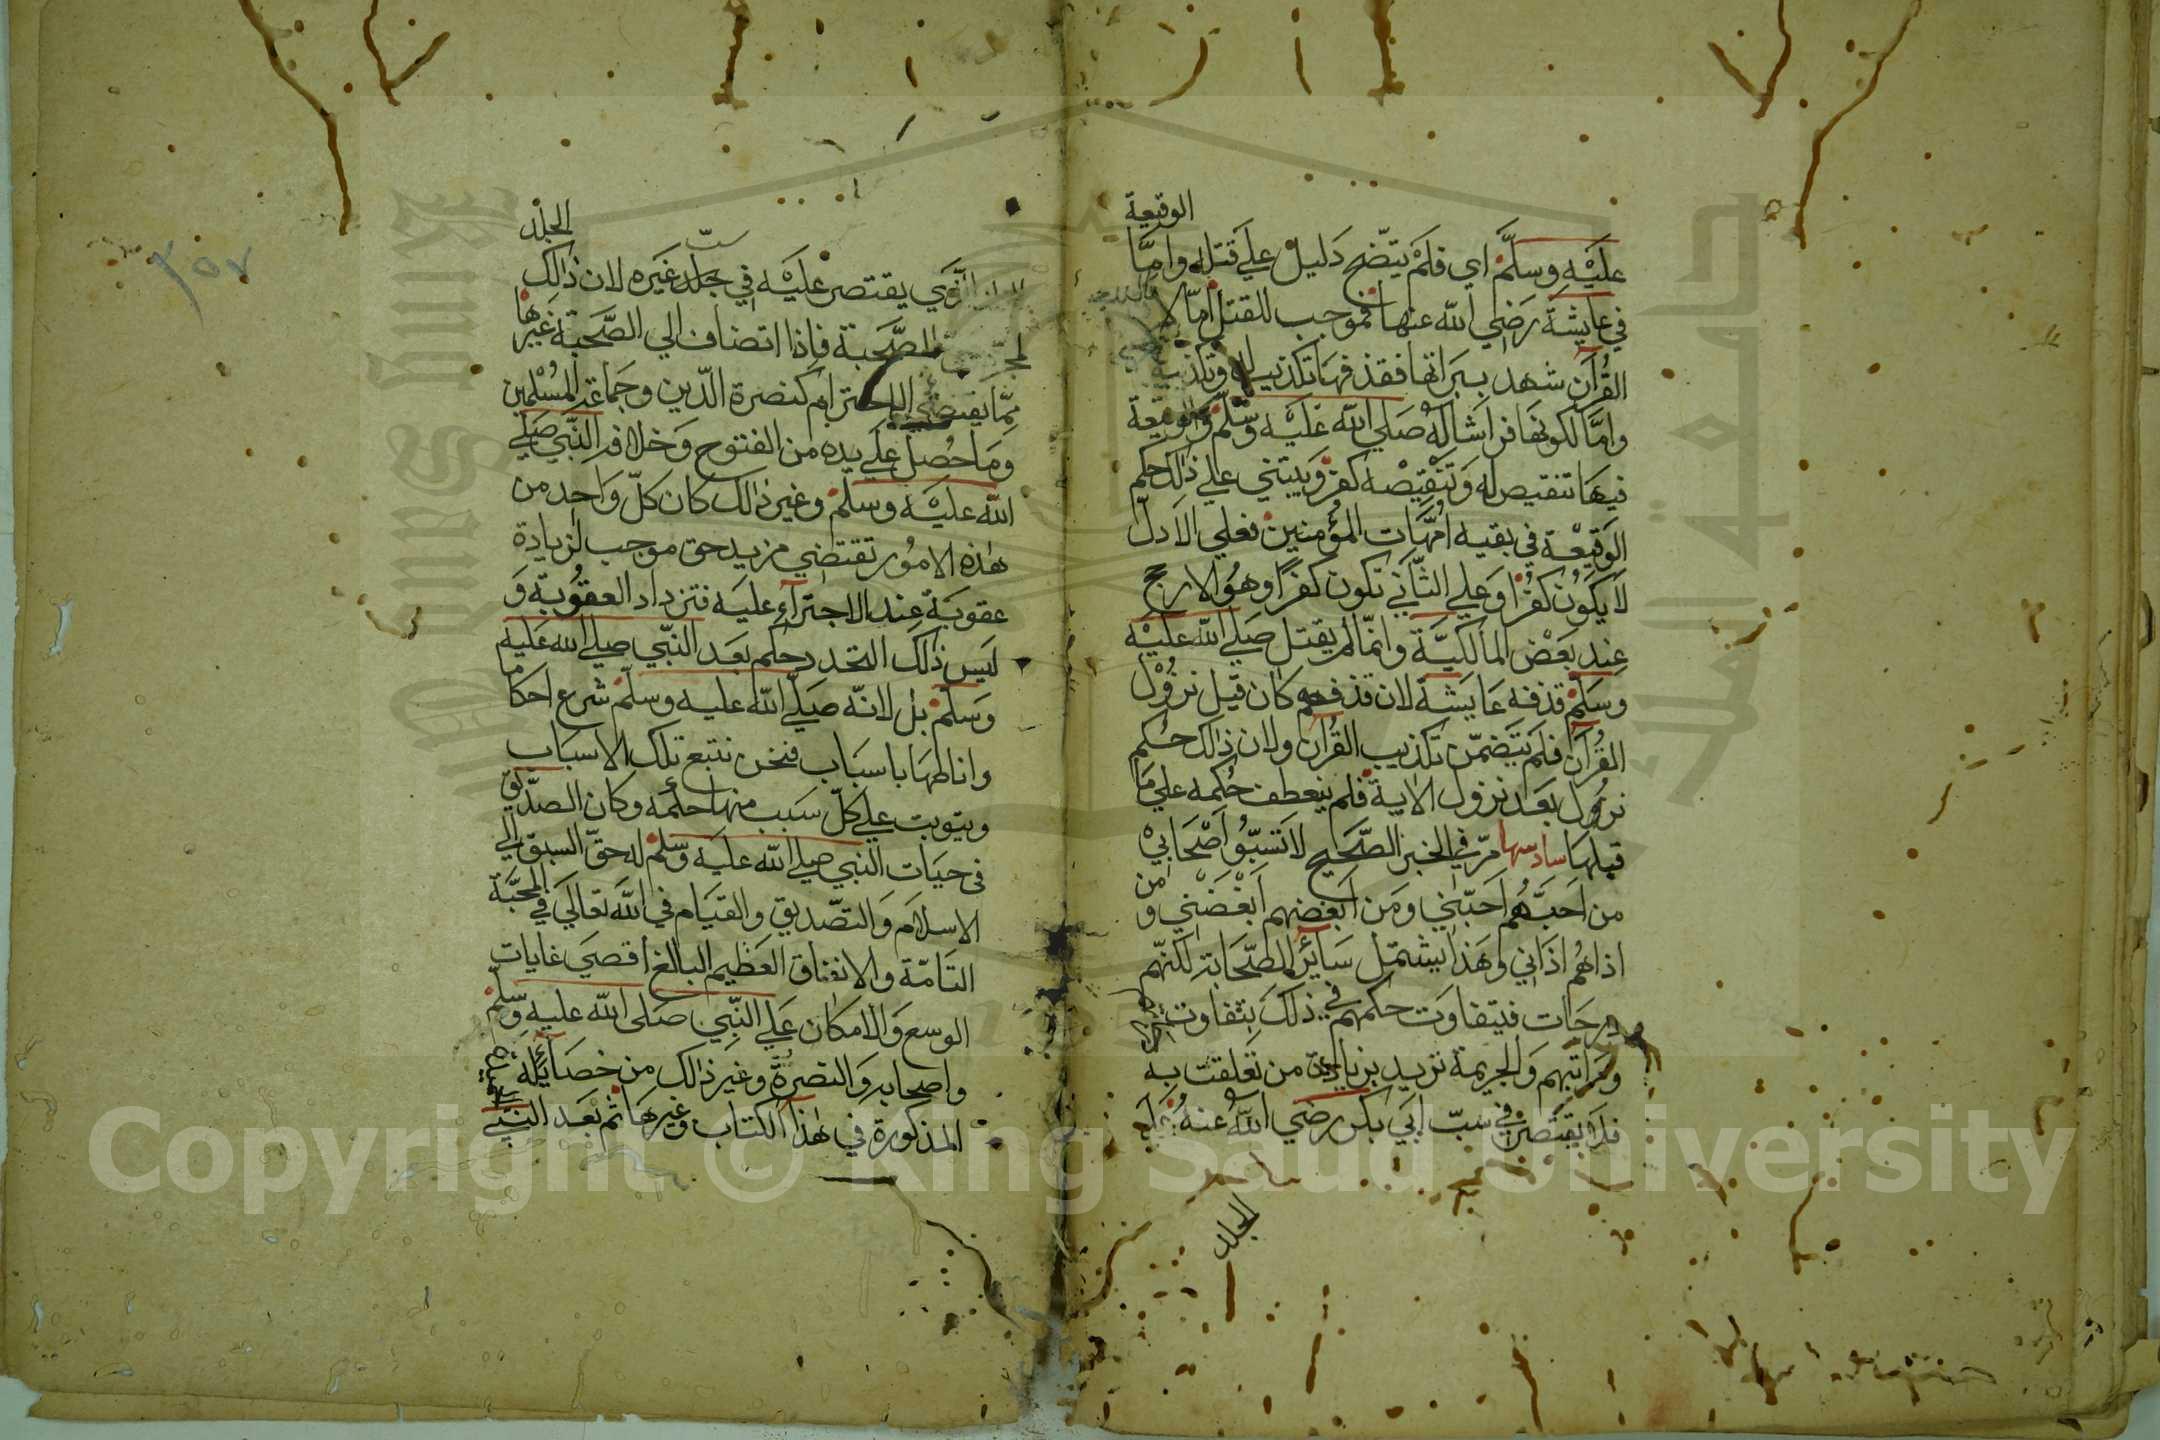 الوقيعة
عليه وسلم اي فلم يتضح دليل علي قتله واما
في عايشة رضي الله عنها فموجب للقتل اما لان
القرآن شهد ببراتها فقذفها تكذيب له وتكذيبه
واما لكونها فراشا له صلي الله عليه وسلم والوقيعة
فيها تنقيص له وتنقيصه كفر ويبتني علي ذلك حكم
الوقيعة في بقيه امهات المؤمنين فعلي الاول
لا يكون كفرا وعلي الثاني تكون كفرا وهو الارجح
عند بعض المالكية وانما لم يقتل صلي الله عليه
وسلم قذفه عايشة لان قذفهم كان قبل نزول
القرآن فلم يتضمن تكذيب القرآن ولان ذلك حكم
نزول بعد نزول الاية فلم ينعطف حكمه علي ما
قبلها سادسها مر في الخبر الصحيح لا تسبوا اصحابي
من احبهم احبني ومن ابغضهم ابغضني ومن
اذاهم اذاني وهذا يشتمل سائر الصحابة لكنهم
درجات فيتفاوت حكمهم في ذلك بتفاوت
ومراتبهم والجريمة تزيد بزيادة من تعلقت به
فلا يقتصر في سب ابي بكر رضي الله عنه علي
الجلد
٣٥٧
الجلد
الذي يقتصر عليه في جلد غيره لان ذالك
الصحبة فاذا انضاف الي الصحبة غيرها
مما يقتضي الاحترام كنصرة الدين وجماعة المسلمين
وما حصل علي يده من الفتوح وخلافة النبي صلي
الله عليه وسلم وغير ذالك كان كل واحد من
هذه الامور تقتضي مزيد حق موجب لزيادة
عقوبة عند الاجتراء عليه فتزداد العقوبة و
ليس ذلك التجدد حكم بعد النبي صلي الله عليه
وسلم بل لانه صلي الله عليه وسلم شرع احكاما
واناطها باسباب فنحن نتبع تلك الاسباب
ويتوبت علي كل سبب منها حكمه وكان الصديق
في حيات النبي صلي الله عليه وسلم له حق السبق الي
الاسلام والتصديق والقيام في الله تعالي في المحبة
التامة والانفاق العظيم البالغ اقصي غايات
الوسع والامكان علي النبي صلي الله عليه وسلم
واصحابه والنصرة وغير ذالك من خصائله
المذكورة في هذا الكتاب وغيرها ثم بعد النبي
Copyright © King Saud University